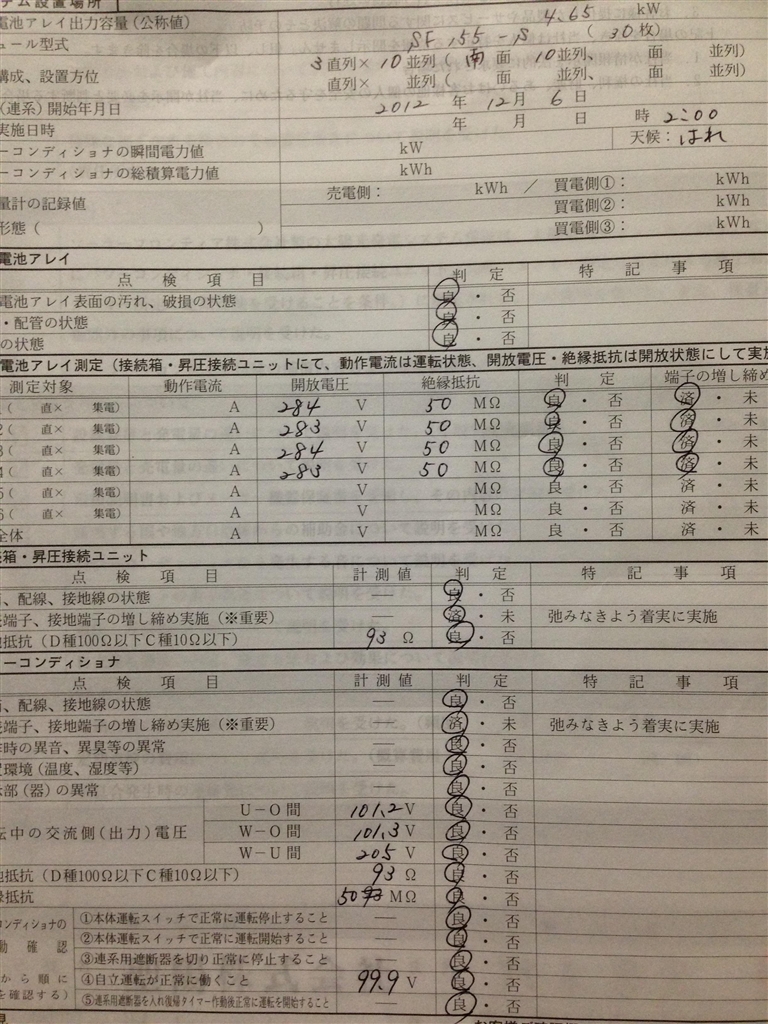 テム設置場所
電池アレイ出力容量(公称値) 4.65 kW
ュール型式 SF 155-S ( 30枚)
構成、設置方位 3直列× 10並列( 南 面 10並列、 面 並列)
直列× 並列( 並列、 面 並列)
(連系)開始年月日 2012 年 12月 6 日
実施日時 年 月 日 時 2:00
ーコンディショナの瞬間電力値 kW 天候: はれ
ーコンディショナの総積算電力値 kWh
量計の記録値 売電側: kWh / 買電側①: kWh
買電側②: kWh
形態( ) 買電側③: kWh
電池アレイ
点検項目 判定 特記事項
電池アレイ表面の汚れ、破損の状態 良・否
・配管の状態 良・否
の状態 良・否
電池アレイ測定(接続箱・昇圧接続ユニットにて、動作電流は運転状態、開放電圧・絶縁抵抗は開放状態にして実施
測定対象 動作電流 開放電圧 絶縁抵抗 判定 端子の増し締め
1( 直× 集電) A 284 V 50 MΩ 良・否 済・未
2( 直× 集電) A 283 V 50 MΩ 良・否 済・未
3( 直× 集電) A 284 V 50 MΩ 良・否 済・未
4( 直× 集電) A 283 V 50 MΩ 良・否 済・未
5( 直× 集電) A V MΩ 良・否 済・未
6( 直× 集電) A V MΩ 良・否 済・未
全体 A V MΩ 良・否 済・未
続箱・昇圧接続ユニット
点検項目 計測値 判定 特記事項
、配線、接地線の状態 — 良・否
端子、接地端子の増し締め実施(※重要) — 済・未 弛みなきよう着実に実施
抵抗(D種100Ω以下C種10Ω以下) 93 Ω 良・否
ーコンディショナ
点検項目 計測値 判定 特記事項
、配線、接地線の状態 — 良・否
端子、接地端子の増し締め実施(※重要) — 済・未 弛みなきよう着実に実施
時の異音、異臭等の異常 — 良・否
環境(温度、湿度等) — 良・否
部(器)の異常 — 良・否
U-O間 101.2 V 良・否
転中の交流側(出力)電圧 W-O間 101.3 V 良・否
W-U間 205 V 良・否
抵抗(D種100Ω以下C種10Ω以下) 93 Ω 良・否
抵抗 50 MΩ 良・否
コンディショナの ①本体運転スイッチで正常に運転停止すること — 良・否
動確認 ②本体運転スイッチで正常に運転開始すること — 良・否
③連系用遮断器を切り正常に停止すること — 良・否
から順に ④自立運転が正常に働くこと 99.9 V 良・否
を確認する) ⑤連系用遮断器を入れ復帰タイマー作動後正常に運転を開始すること 良・否